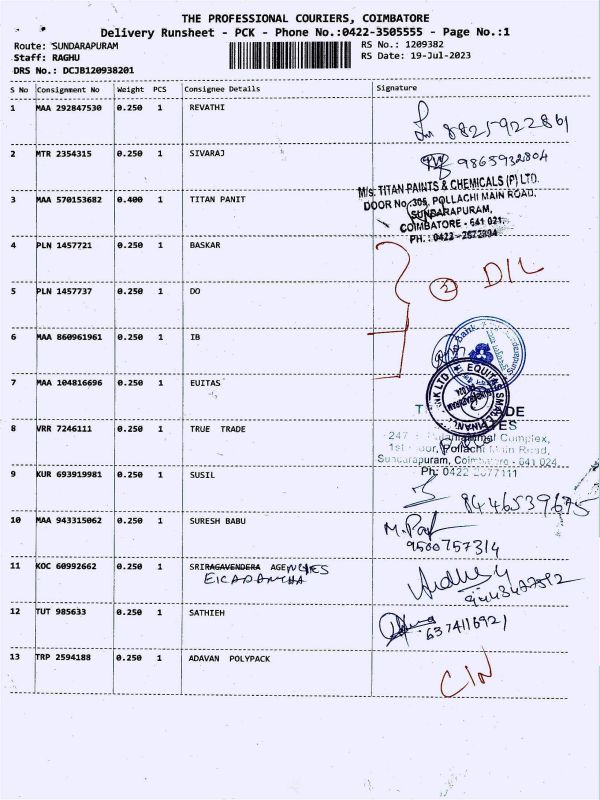 THE PROFESSIONAL COURIERS, COIMBATORE
Delivery Runsheet - PCK - Phone No.:0422-3505555 - Page No.:1
Route: SUNDARAPURAM
RS No.: 1209382
Staff: RAGHU
RS Date: 19-Jul-2023
DRS No.: DCJB120938201
S No Consignment No Weight PCS Consignee Details Signature
1 MAA 292847530 0.250 1 REVATHI
8825922861
2 MTR 2354315 0.250 1 SIVARAJ
9865932804
3 MAA 570153682 0.400 1 TITAN PANIT
M/s. TITAN PAINTS & CHEMICALS (P) LTD.
DOOR No.:305, POLLACHI MAIN ROAD,
SUNDARAPURAM,
COIMBATORE - 641 021.
PH. : 0422 -
4 PLN 1457721 0.250 1 BASKAR
2 D/L
5 PLN 1457737 0.250 1 DO
6 MAA 860961961 0.250 1 IB
7 MAA 104816696 0.250 1 EUITAS
8 VRR 7246111 0.250 1 TRUE TRADE
Complex,
Pollachi Main Road,
Sundarapuram, Coimbatore - 641 024.
Ph: 0422 2677111
9 KUR 693919981 0.250 1 SUSIL
8446539675
10 MAA 943315062 0.250 1 SURESH BABU
9500757314
11 KOC 60992662 0.250 1 SRIRAGAVENDERA AGENCIES
12 TUT 985633 0.250 1 SATHIEH
6374116921
13 TRP 2594188 0.250 1 ADAVAN POLYPACK
C/N